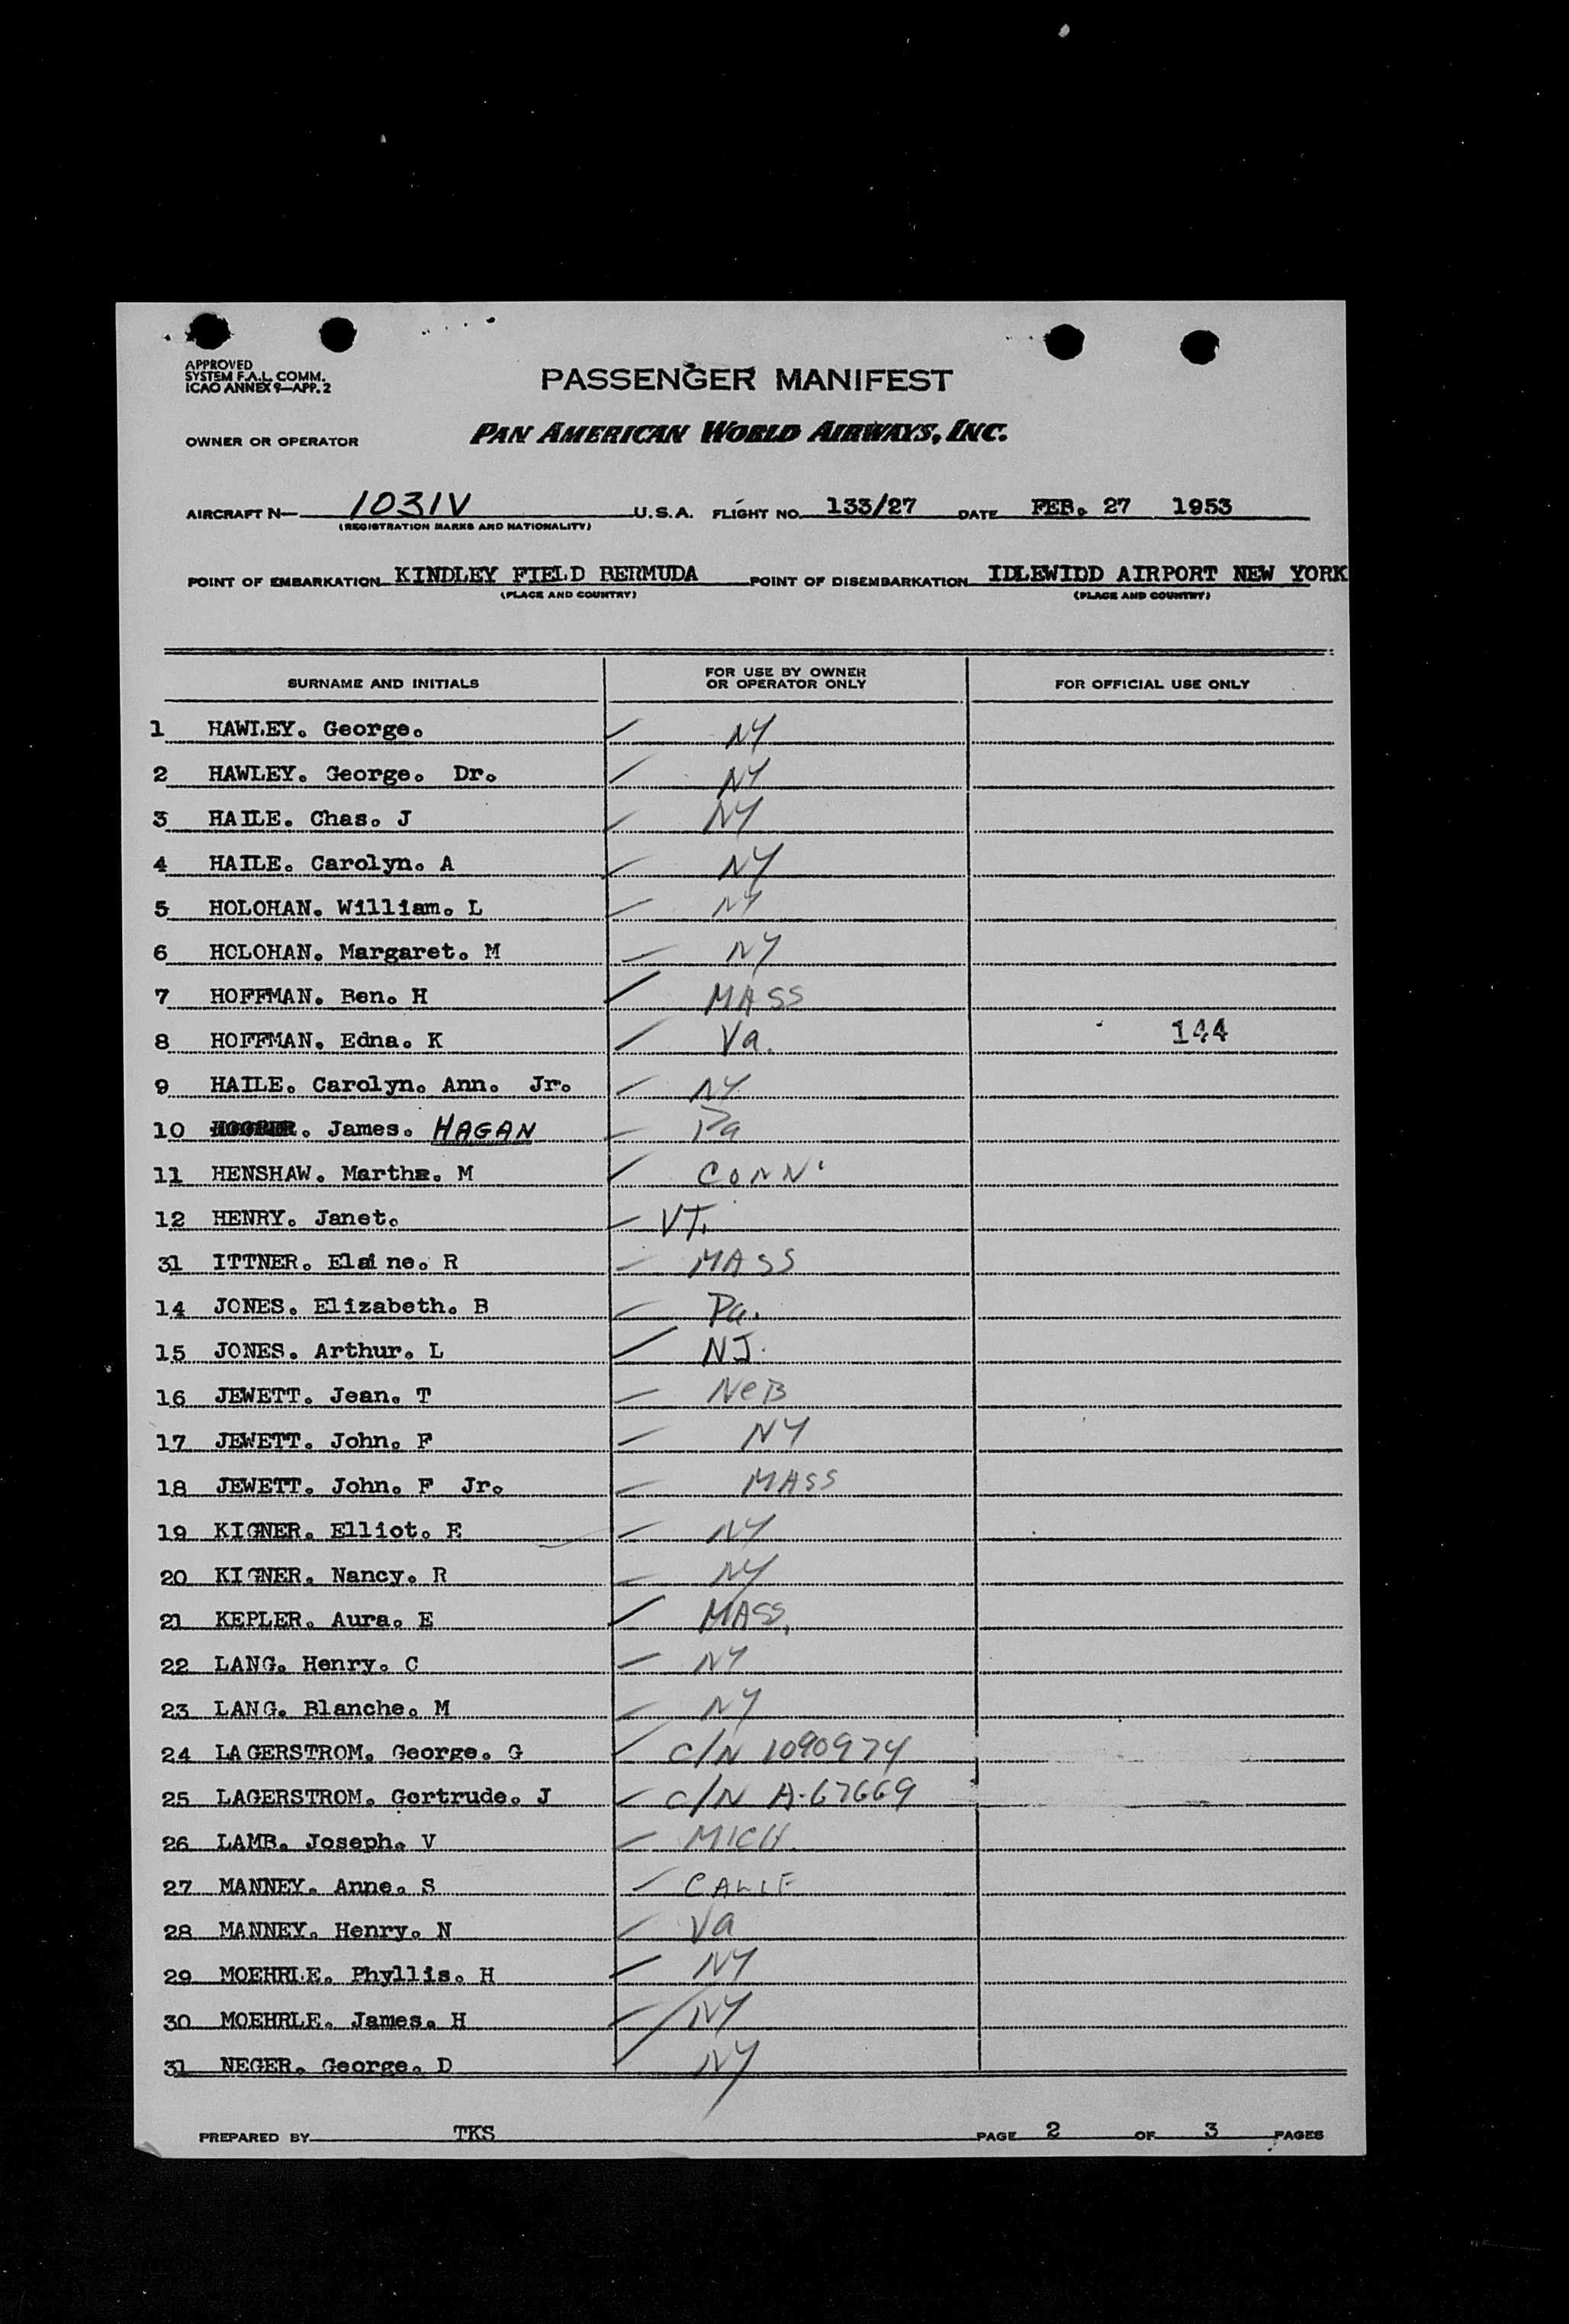 APPROVED
SYSTEM F.A.L. COMM.
ICAO ANNEX 9—APP. 2
PASSENGER MANIFEST
OWNER OR OPERATOR PAN AMERICAN WORLD AIRWAYS, INC.
AIRCRAFT N— 1031V U.S.A. FLIGHT NO. 133/27 DATE FEB. 27 1953
(REGISTRATION MARKS AND NATIONALITY)
POINT OF EMBARKATION KINDLEY FIELD BERMUDA POINT OF DISEMBARKATION IDLEWIDD AIRPORT NEW YORK
(PLACE AND COUNTRY) (PLACE AND COUNTRY)
SURNAME AND INITIALS FOR USE BY OWNER OR OPERATOR ONLY FOR OFFICIAL USE ONLY
1 HAWLEY. George. NY
2 HAWLEY. George. Dr. NY
3 HAILE. Chas. J NY
4 HAILE. Carolyn. A NY
5 HOLOHAN. William. L NY
6 HOLOHAN. Margaret. M NY
7 HOFFMAN. Ben. H MASS
8 HOFFMAN. Edna. K Va. 144
9 HAILE. Carolyn. Ann. Jr. NY
10 . James. HAGAN Pa
11 HENSHAW. Martha. M CONN.
12 HENRY. Janet. VT.
31 ITTNER. Elaine. R MASS
14 JONES. Elizabeth. B Pa.
15 JONES. Arthur. L NJ.
16 JEWETT. Jean. T NeB
17 JEWETT. John. F NY
18 JEWETT. John. F Jr. MASS
19 KIGNER. Elliot. E NY
20 KIGNER. Nancy. R NY
21 KEPLER. Aura. E MASS.
22 LANG. Henry. C NY
23 LANG. Blanche. M NY
24 LAGERSTROM. George. G C/N 1090974
25 LAGERSTROM. Gertrude. J C/N A-67669
26 LAMB. Joseph. V MICH.
27 MANNEY. Anne. S CALIF
28 MANNEY. Henry. N Va
29 MOEHRLE. Phyllis. H NY
30 MOEHRLE. James. H NY
31 NEGER. George. D NY
PREPARED BY TKS PAGE 2 OF 3 PAGES